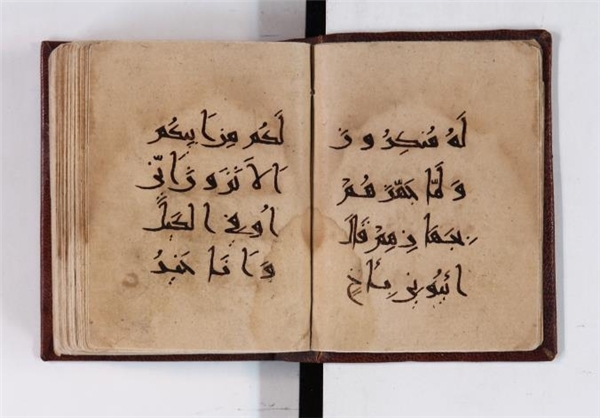 لَهُ مُنكِرُونَ
وَلَمَّا جَهَّزَهُمْ
بِجَهَازِهِمْ قَالَ
ائْتُونِي بِأَخٍ
لَكُم مِن اَبِيكُم
اَلَا تَرَوْنَ اَنِّي
اُوفِي الكَيْلَ
وَاَنَا خَيْرُ